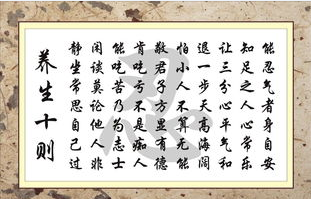 养生十则
静坐常思自己过
闲谈莫论他人非
能吃苦乃为志士
肯吃亏不是痴人
敬君子方显有德
怕小人不算无能
退一步天高海阔
让三分心平气和
知足之人心常乐
能忍气者身自安
忍